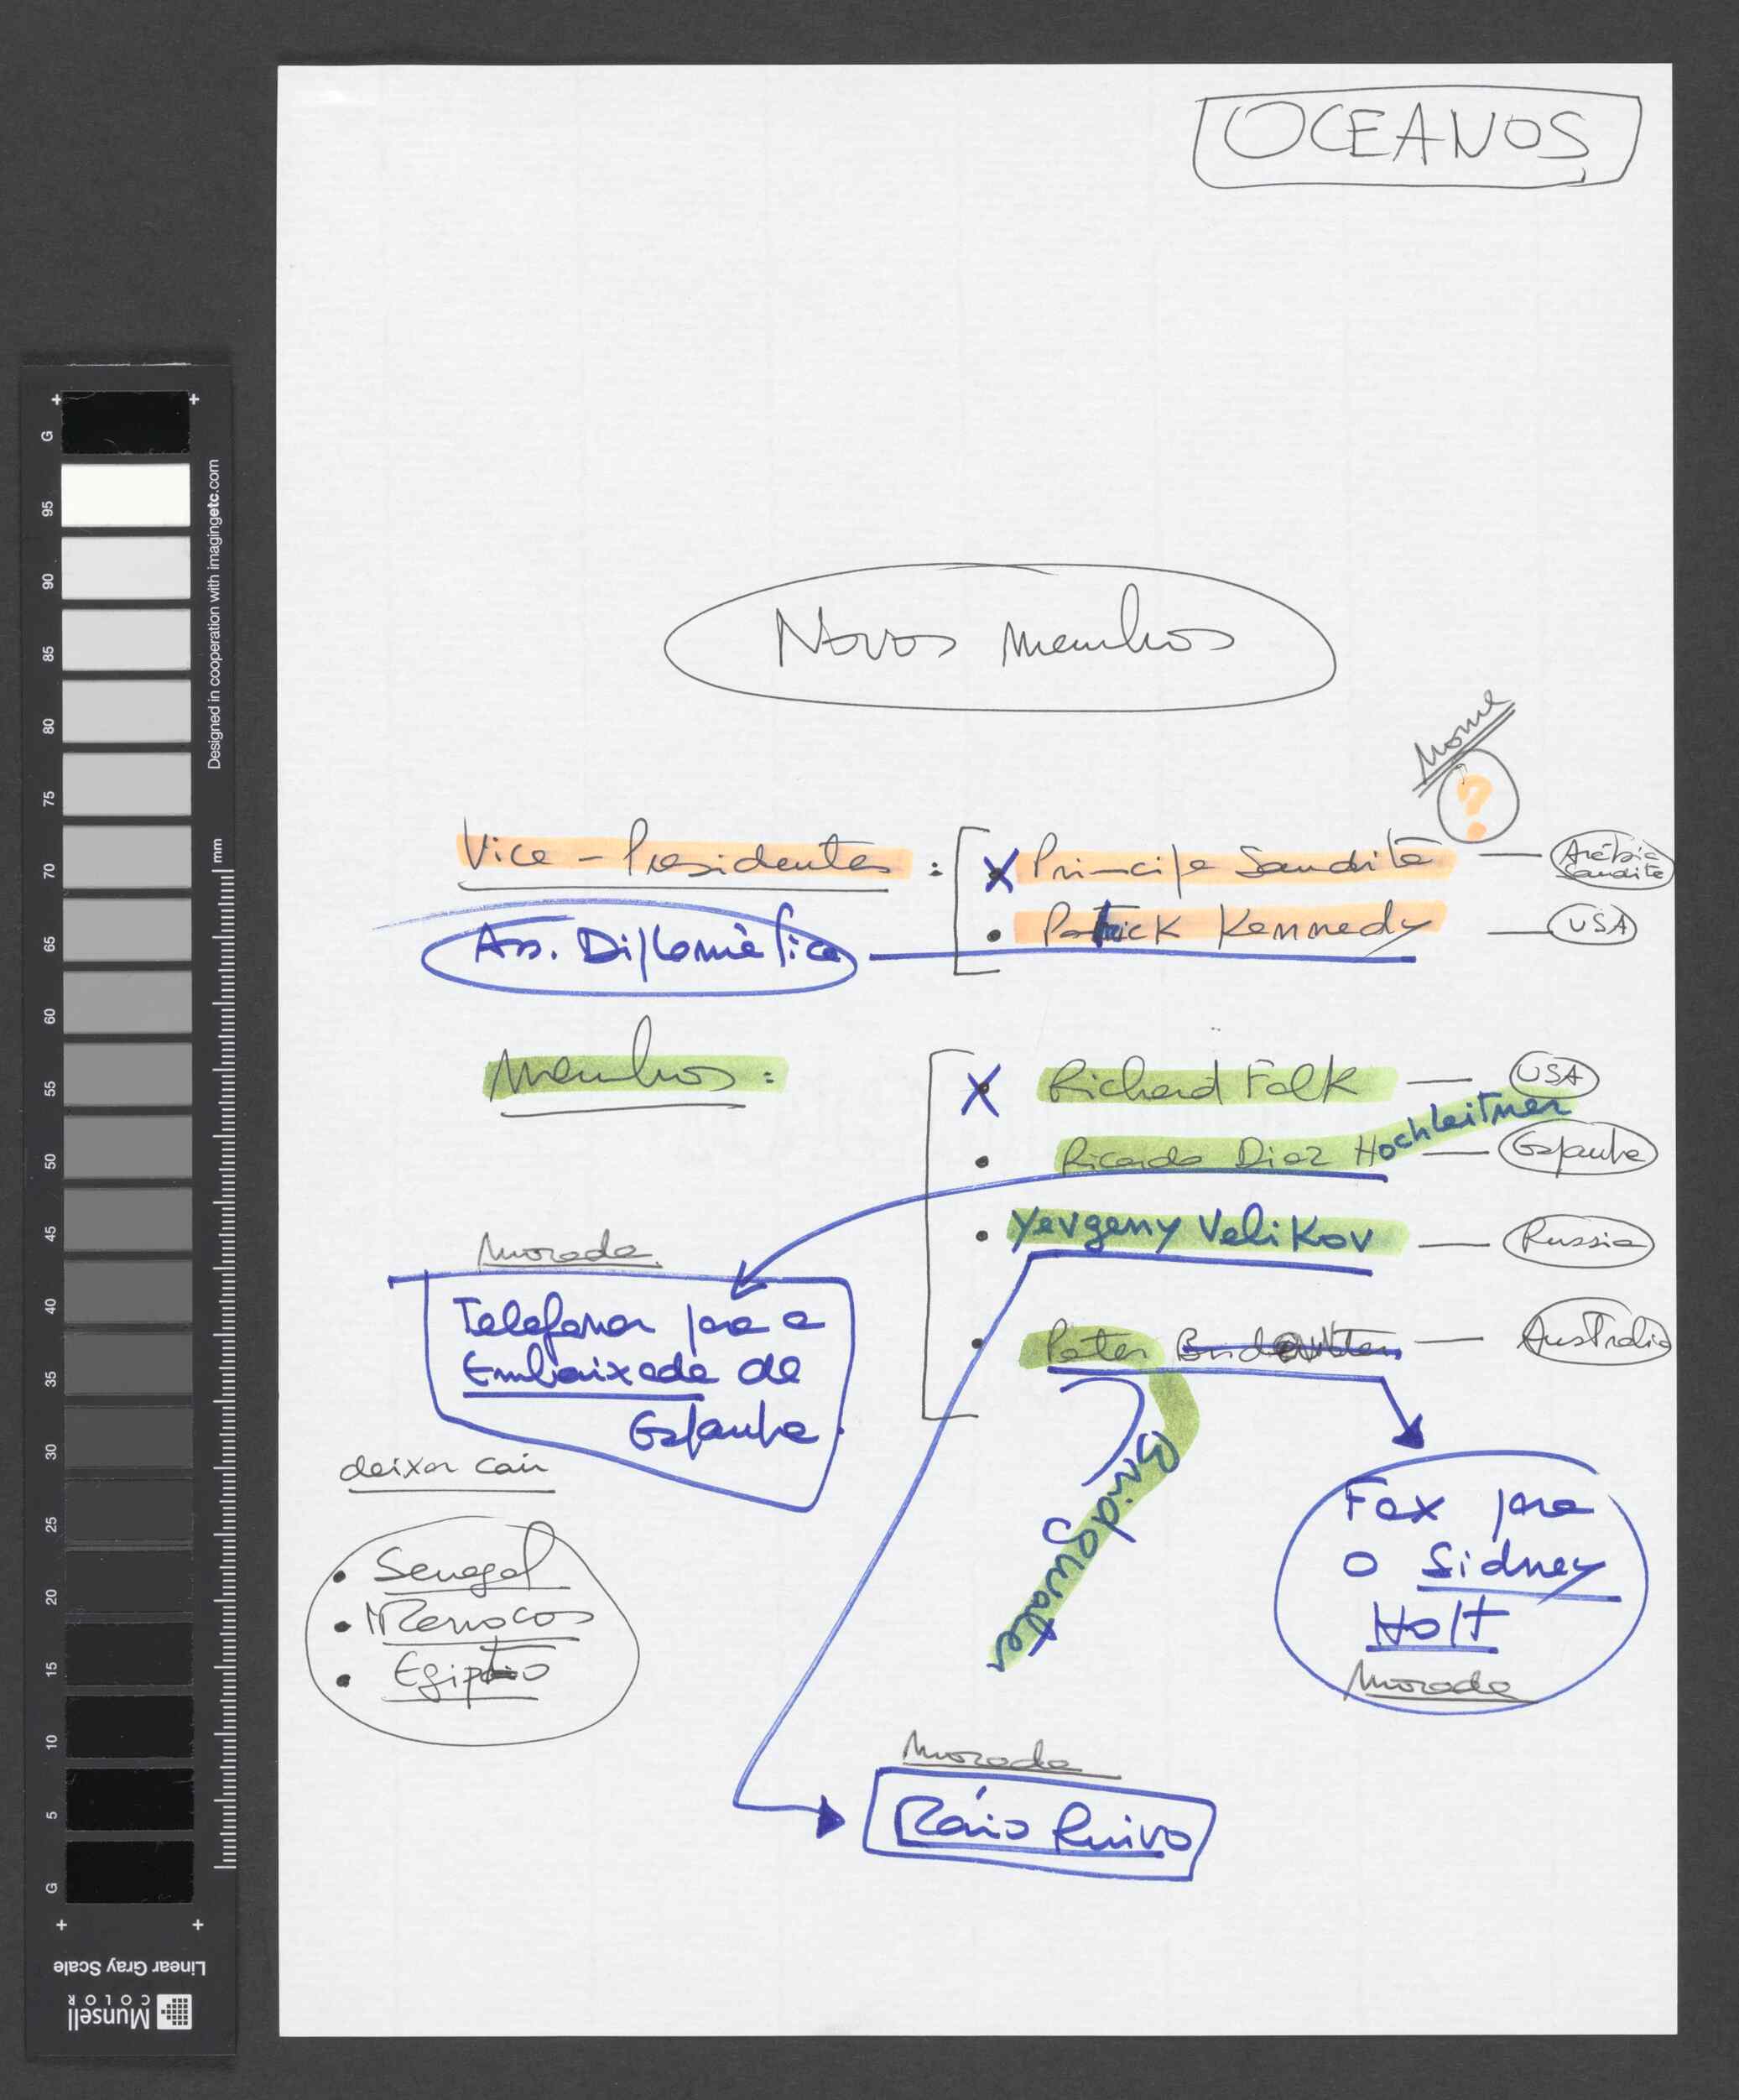 OCEANOS
Novos Membros
Nome
?
Vice-Presidentes :
x Principe Saudita — Arábia Saudita
Ass. Diplomática
• Patrick Kennedy — USA
Membros :
x Richard Falk — USA
• Ricardo Diez Hochleitner — Espanha
• Yevgeny Velikov — Russia
• Peter — Australia
Bridgewater
Morada
Telefonar para a
Embaixada de
Espanha
deixar cair
• Senegal
• Marrocos
• Egipto
Fax para
o Sidney
Holt
Morada
Morada
Mário Ruivo
+ +
G
95
90
85
80
75
70
65
60
55
50
45
40
35
30
25
20
15
10
5
G
+ +
Designed in cooperation with imagingetc.com
mm
Linear Gray Scale
Munsell
COLOR